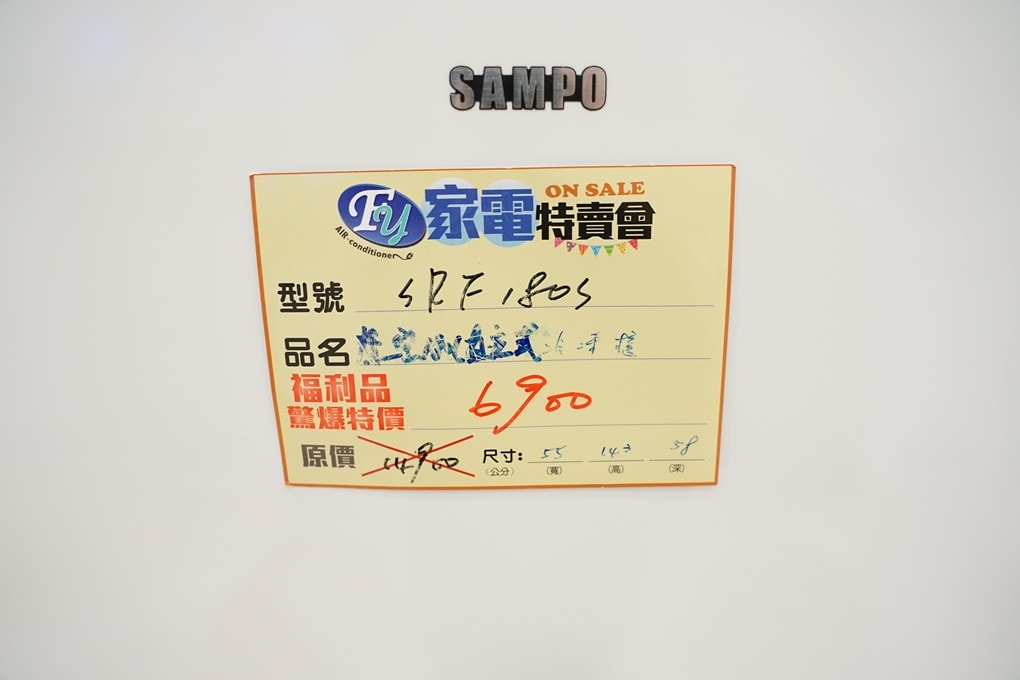 SAMPO
FY 家電 ON SALE
AIR-conditioner 特賣會
型號 SRF 180S
品名 直立式冷凍櫃
福利品
驚爆特價 6900
原價 14900 尺寸: 55 143 58
(公分) (寬) (高) (深)